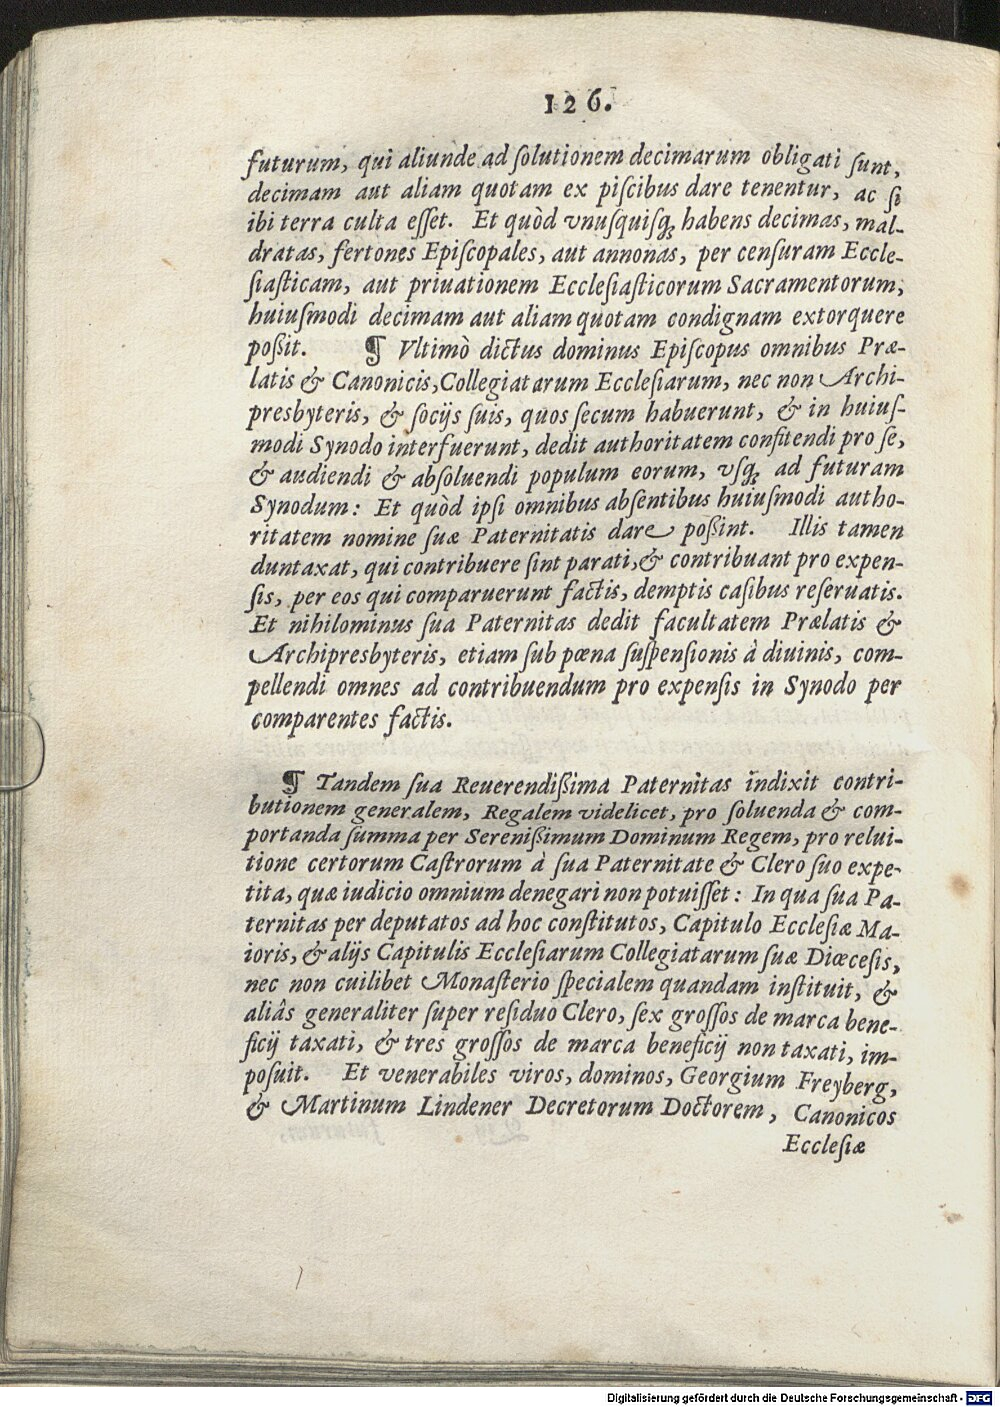 126.
futurum, qui aliunde ad ſolutionem decimarum obligati ſunt,
decimam aut aliam quotam ex piſcibus dare tenentur, ac ſi
ibi terra culta eſſet. Et quòd vnuſquiſq; habens decimas, mal-
dratas, fertones Epiſcopales, aut annonas, per cenſuram Eccle-
ſiaſticam, aut priuationem Eccleſiaſticorum Sacramentorum,
huiuſmodi decimam aut aliam quotam condignam extorquere
poßit. ¶ Vltimò dictus dominus Epiſcopus omnibus Præ-
latis & Canonicis, Collegiatarum Eccleſiarum, nec non Archi-
presbyteris, & ſocijs ſuis, quos ſecum habuerunt, & in huiuſ-
modi Synodo interfuerunt, dedit authoritatem confitendi pro ſe,
& audiendi & abſoluendi populum eorum, vſq; ad futuram
Synodum: Et quòd ipſi omnibus abſentibus huiuſmodi autho-
ritatem nomine ſuæ Paternitatis dare poßint. Illis tamen
duntaxat, qui contribuere ſint parati, & contribuant pro expen-
ſis, per eos qui comparuerunt factis, demptis caſibus reſeruatis.
Et nihilominus ſua Paternitas dedit facultatem Prælatis &
Archipresbyteris, etiam ſub pœna ſuſpenſionis à diuinis, com-
pellendi omnes ad contribuendum pro expenſis in Synodo per
comparentes factis.
¶ Tandem ſua Reuerendißima Paternitas indixit contri-
butionem generalem, Regalem videlicet, pro ſoluenda & com-
portanda ſumma per Serenißimum Dominum Regem, pro relui-
tione certorum Caſtrorum à ſua Paternitate & Clero ſuo expe-
tita, quæ iudicio omnium denegari non potuiſſet: In qua ſua Pa-
ternitas per deputatos ad hoc conſtitutos, Capitulo Eccleſiæ Ma-
ioris, & alijs Capitulis Eccleſiarum Collegiatarum ſuæ Diœceſis,
nec non cuilibet Monaſterio ſpecialem quandam inſtituit, &
aliâs generaliter ſuper reſiduo Clero, ſex groſſos de marca bene-
ficij taxati, & tres groſſos de marca beneficij non taxati, im-
poſuit. Et venerabiles viros, dominos, Georgium Freyberg,
& Martinum Lindener Decretorum Doctorem, Canonicos
Eccleſiæ
Digitalisierung gefördert durch die Deutsche Forschungsgemeinschaft - DFG